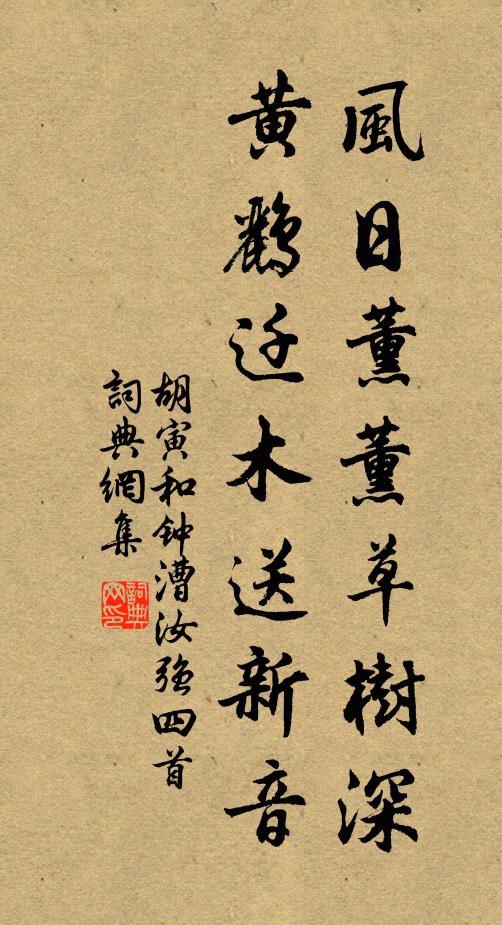 風日薰薰草樹深
黃鸝迁木送新音
胡寅和钟漕汝強四首
詞典網集
詞典网印